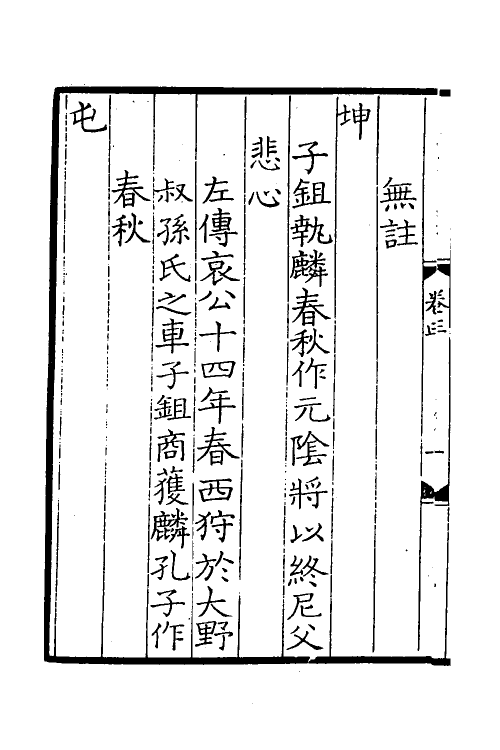 卷
一
無註
坤
子鉏執麟春秋作元陰將以終尼父
悲心
左傳哀公十四年春西狩於大野
叔孫氏之車子鉏商獲麟孔子作
春秋
屯